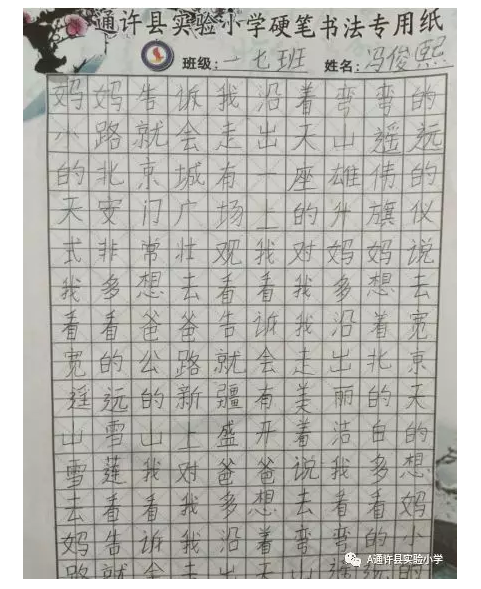 通许县实验小学硬笔书法专用纸
班级：一七班 姓名：冯俊熙
妈妈告诉我沿着弯弯的
小路就会走出天山遥远
的北京城有一座雄伟的
天安门广场上的升旗仪
式非常壮观我对妈妈说
我多想去看看我多想去
看看爸爸告诉我沿着宽
宽的公路就会走出北京
遥远的新疆有美丽的天
山雪山上盛开着洁白的
雪莲我对爸爸说我多想
去看看我多想去看看妈
妈告诉我沿着弯弯的小
路就会走出天山遥远的
A通许县实验小学